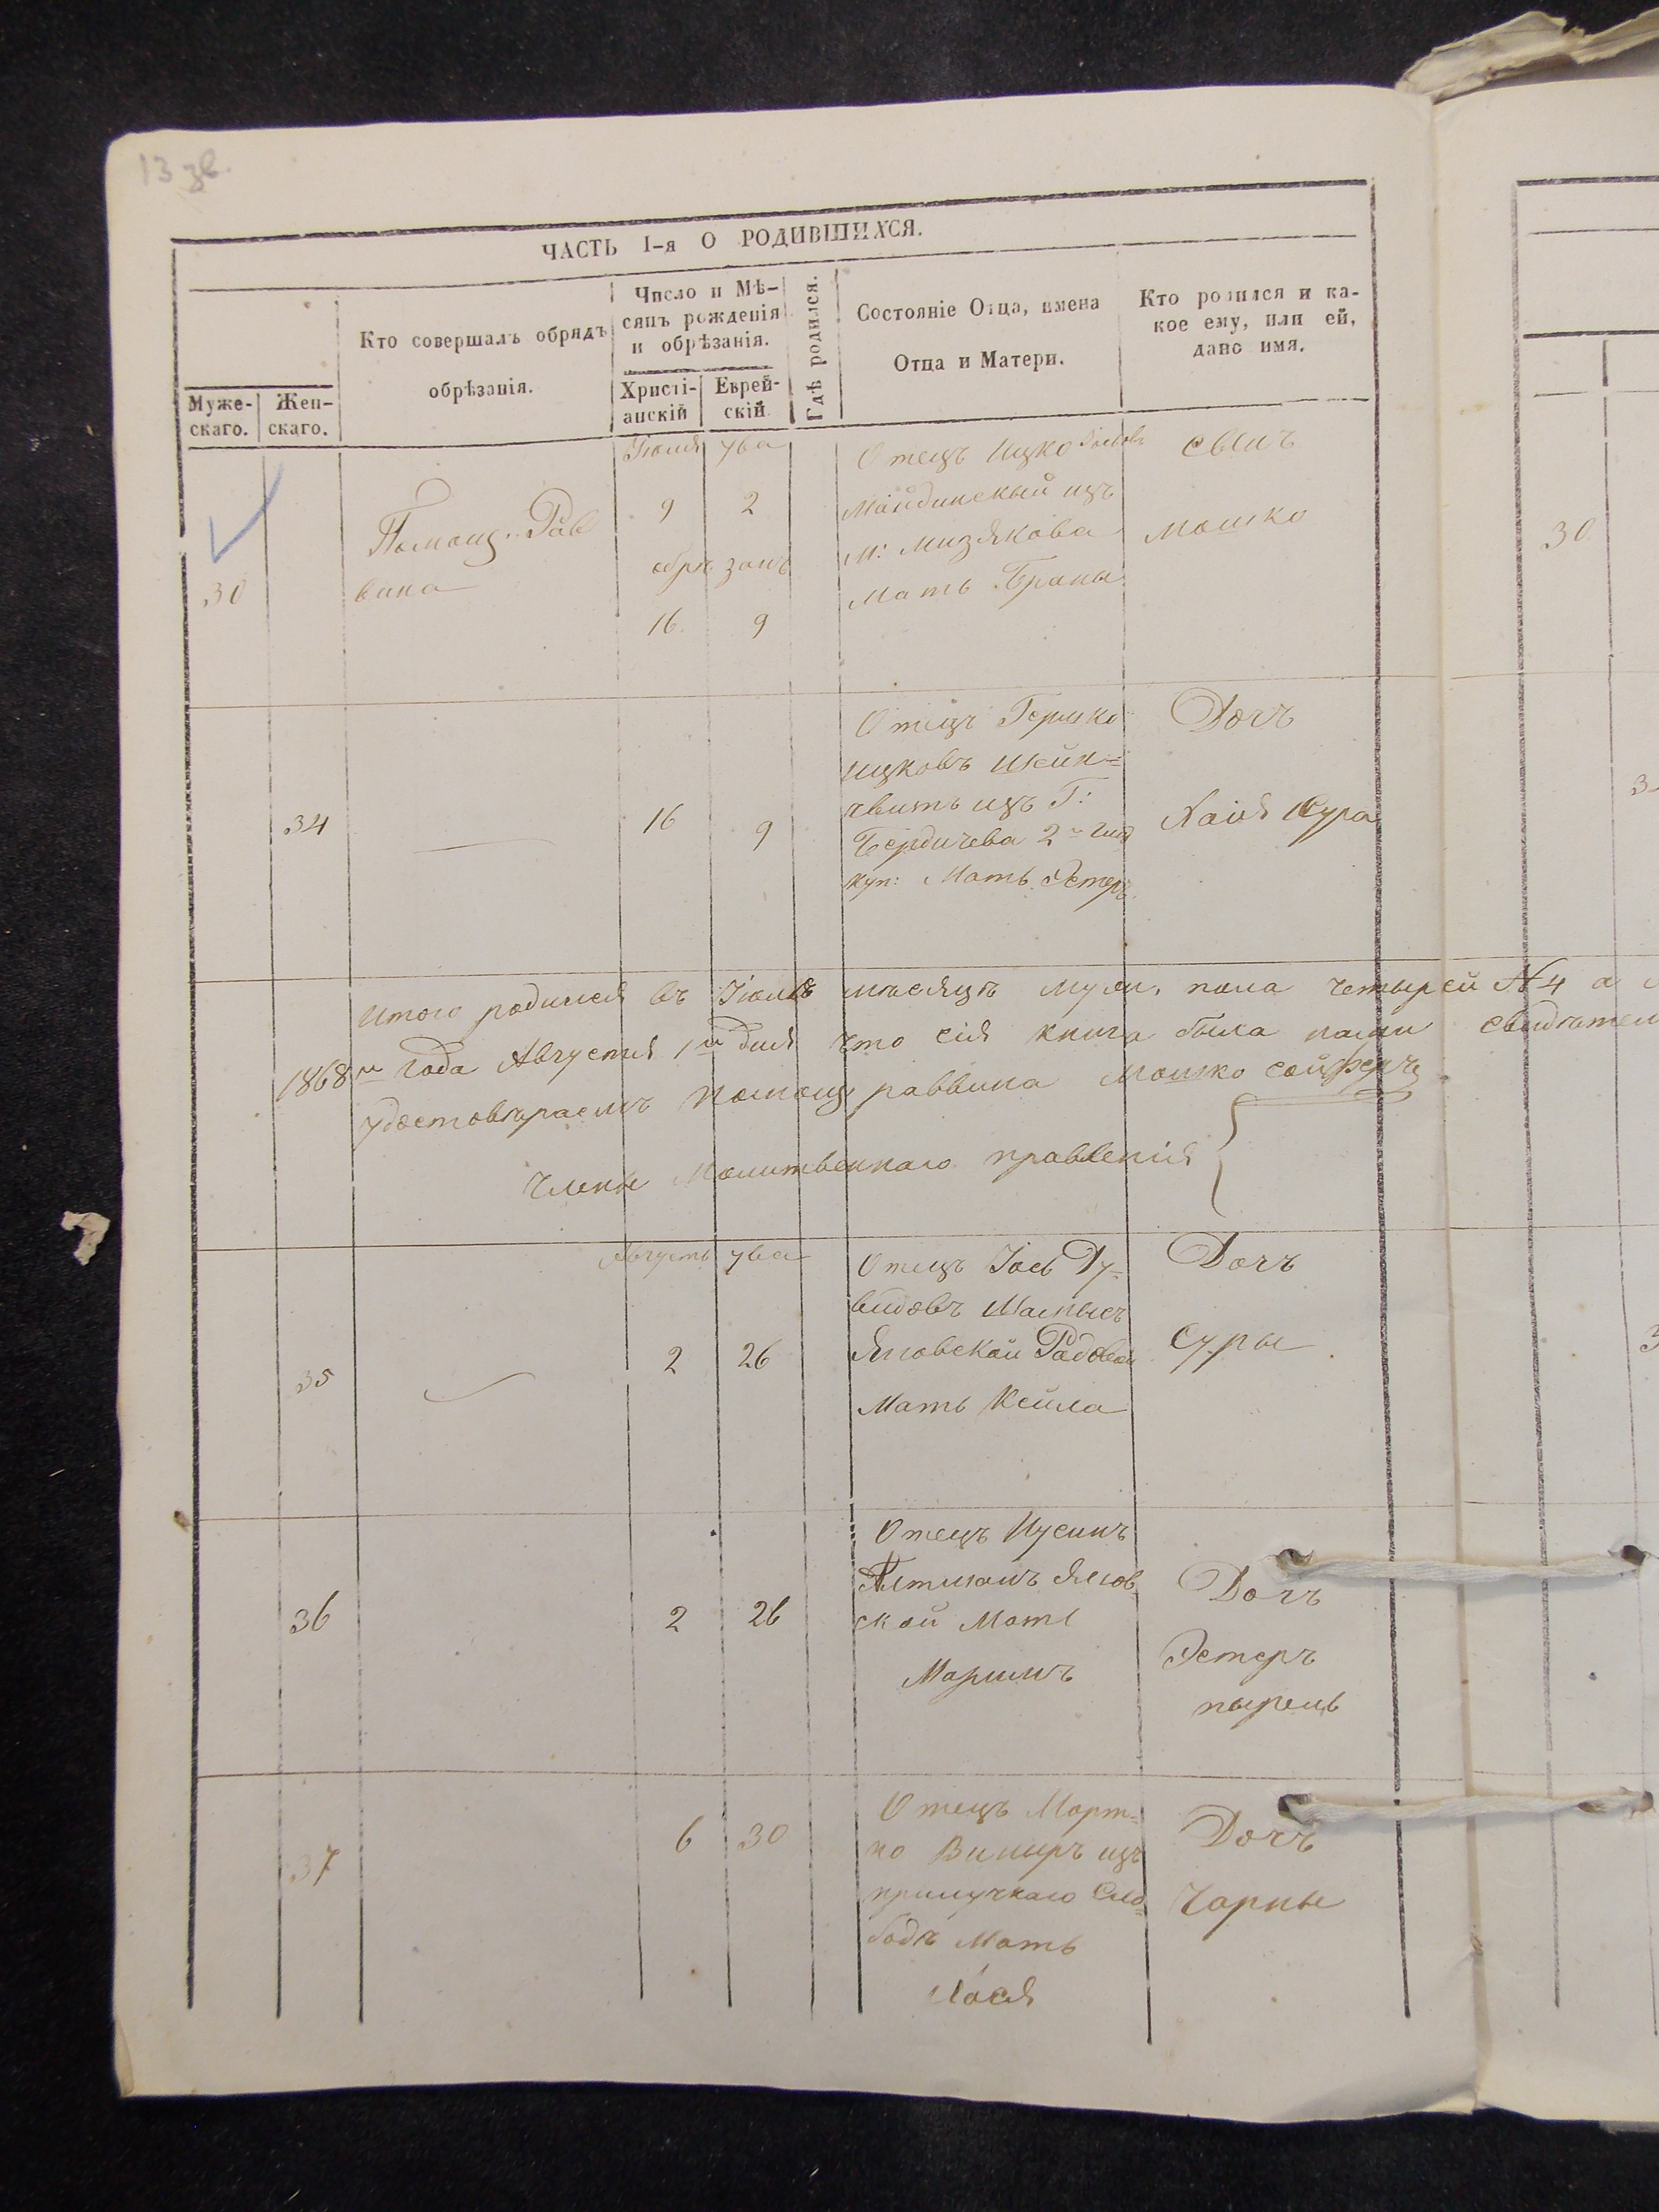 13 зв.
ЧАСТЬ I-я О РОДИВШИХСЯ.
Муже-
скаго.
Жен-
скаго.
Кто совершалъ обрядъ
обрѣзанія.
Число и Мѣ-
сяцъ рожденія
и обрѣзанія.
Христі-
анскій
Еврей-
скій
Гдѣ родился.
Состояніе Отца, имена
Отца и Матери.
Кто родился и ка-
кое ему, или ей,
дано имя.
30
Помощ. Рав
вина
Июля ува
9 2
обрѣзанъ
16 9
Отецъ Ицко
Майдинскый изъ
м: Мизякова
Мать Браны
сынъ
Мошко
34
16 9
Отецъ Гершко
Ицковъ Шейн-
Бердичева 2й гил
куп: Мать Эстеръ
Дочъ
Хаия Сура
Итого родился въ Июлѣ мѣсяцѣ муж. пола четырей №4 а
1868го года Августя 1го дня что сія книга была нами
удостовѣраемъ Помощ раввина Мошко Сойферъ
Члены Молитвеннаго правленія
35
Августъ ува
2 26
Отецъ Іось Ду-
видовъ
Яновской
Мать Кейла
Дочъ
Суры
36
2 26
Отецъ Нусинъ
Алтманъ Янов
ской Мать
Маримъ
Дочъ
Эстеръ
37
6 30
Отецъ Морт-
ко Виныръ изъ
прилучкаго Сло-
бодѣ Мать
Хася
Дочъ
Чарны
30